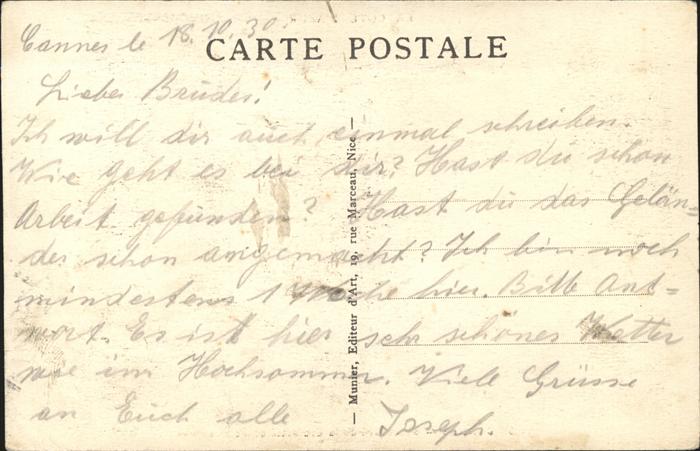 Cannes le 18.10.30.
CARTE POSTALE
Lieber Bruder!
Ich will dir auch einmal schreiben.
Wie geht es bei dir? Hast du schon
Arbeit gefunden? Hast du das Gelän=
der schon angemacht? Ich bin noch
mindestens 1 Woche hier. Bitte Ant=
wort. Es ist hier sehr schönes Wetter
wie im Hochsommer. Viele Grüsse
an Euch alle Joseph.
— Munier, Editeur d'Art, 19, rue Marceau, Nice —